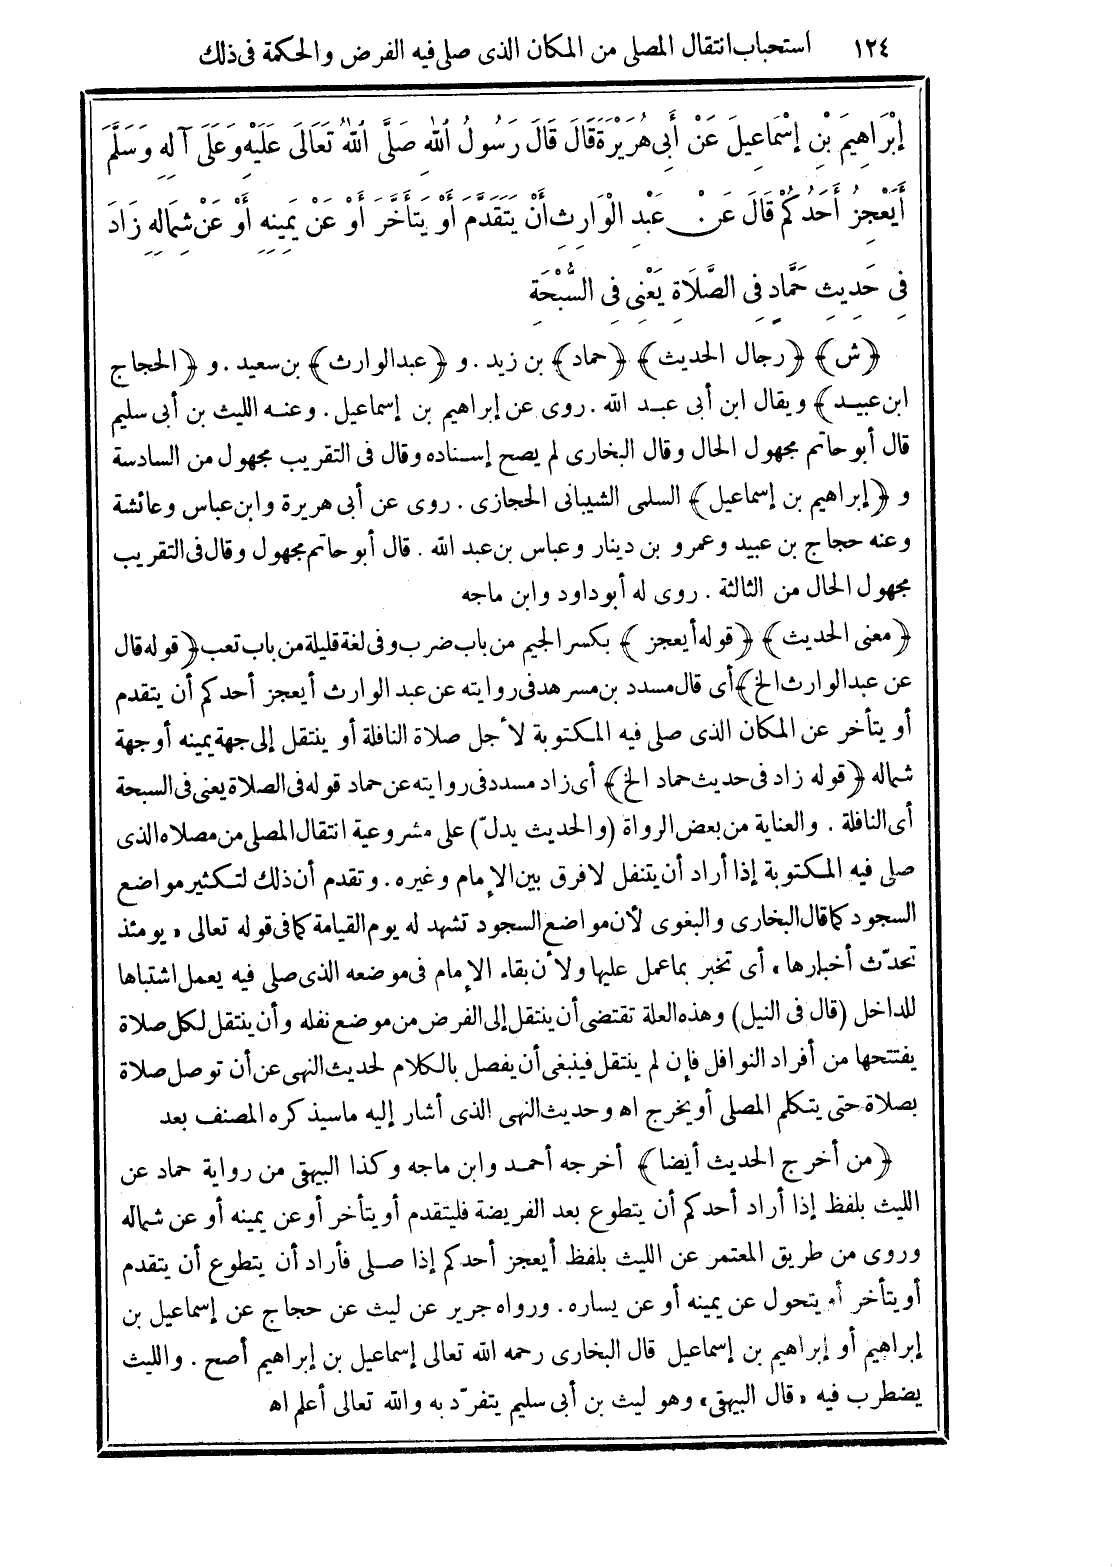 ١٢٤ استحباب انتقال المصلى من المكان الذى صلى فيه الفرض والحكمة فى ذلك
إِبْرَاهِيمَ بْنِ إِسْمَاعِيلَ عَنْ أَبِى هُرَيْرَةَ قَالَ قَالَ رَسُولُ اللهِ صَلَّى اللهُ تَعَالَى عَلَيْهِ وَعَلَى آلِهِ وَسَلَّمَ
أَيَعْجِزُ أَحَدُكُمْ قَالَ عَنْ عَبْدِ الْوَارِثِ أَنْ يَتَقَدَّمَ أَوْ يَتَأَخَّرَ أَوْ عَنْ يَمِينِهِ أَوْ عَنْ شِمَالِهِ زَادَ
فِى حَدِيثِ حَمَّادٍ فِى الصَّلَاةِ يَعْنِى فِى السُّبْحَةِ
﴿ش﴾ ﴿رجال الحديث﴾ ﴿حماد﴾ بن زيد. و ﴿عبدالوارث﴾ بن سعيد. و ﴿الحجاج
ابن عبيد﴾ ويقال ابن أبى عبد الله. روى عن إبراهيم بن إسماعيل. وعنه الليث بن أبى سليم
قال أبو حاتم مجهول الحال وقال البخارى لم يصح إسناده وقال فى التقريب مجهول من السادسة
و ﴿إبراهيم بن إسماعيل﴾ السلمى الشيبانى الحجازى. روى عن أبى هريرة وابن عباس وعائشة
وعنه حجاج بن عبيد وعمرو بن دينار وعباس بن عبد الله. قال أبو حاتم مجهول وقال فى التقريب
مجهول الحال من الثالثة. روى له أبو داود وابن ماجه
﴿معنى الحديث﴾ ﴿قوله أيعجز﴾ بكسر الجيم من باب ضرب وفى لغة قليلة من باب تعب ﴿قوله قال
عن عبد الوارث الخ﴾ أى قال مسدد بن مسرهد فى روايته عن عبد الوارث أيعجز أحدكم أن يتقدم
أو يتأخر عن المكان الذى صلى فيه المكتوبة لأجل صلاة النافلة أو ينتقل إلى جهة يمينه أو جهة
شماله ﴿قوله زاد فى حديث حماد الخ﴾ أى زاد مسدد فى روايته عن حماد قوله فى الصلاة يعنى فى السبحة
أى النافلة. والعناية من بعض الرواة (والحديث يدلّ) على مشروعية انتقال المصلى من مصلاه الذى
صلى فيه المكتوبة إذا أراد أن يتنفل لافرق بين الإمام وغيره. وتقدم أن ذلك لتكثير مواضع
السجود كما قال البخارى والبغوى لأن مواضع السجود تشهد له يوم القيامة كما فى قوله تعالى «يومئذ
تحدّث أخبارها» أى تخبر بما عمل عليها ولأن بقاء الإمام فى موضعه الذى صلى فيه يعمل اشتباها
للداخل (قال فى النيل) وهذه العلة تقتضى أن ينتقل إلى الفرض من موضع نفله وأن ينتقل لكل صلاة
يفتتحها من أفراد النوافل فإن لم ينتقل فينبغى أن يفصل بالكلام لحديث النهى عن أن توصل صلاة
بصلاة حتى يتكلم المصلى أو يخرج اه وحديث النهى الذى أشار إليه ما سيذكره المصنف بعد
﴿من أخرج الحديث أيضا﴾ أخرجه أحمد وابن ماجه وكذا البيهقى من رواية حماد عن
الليث بلفظ إذا أراد أحدكم أن يتطوع بعد الفريضة فليتقدم أو يتأخر أو عن يمينه أو عن شماله
وروى من طريق المعتمر عن الليث بلفظ أيعجز أحدكم إذا صلى فأراد أن يتطوع أن يتقدم
أو يتأخر أو يتحول عن يمينه أو عن يساره. ورواه جرير عن ليث عن حجاج عن إسماعيل بن
إبراهيم أو إبراهيم بن إسماعيل قال البخارى رحمه الله تعالى إسماعيل بن إبراهيم أصح. والليث
يضطرب فيه «قال البيهقى» وهو ليث بن أبى سليم يتفرّد به والله تعالى أعلم اه